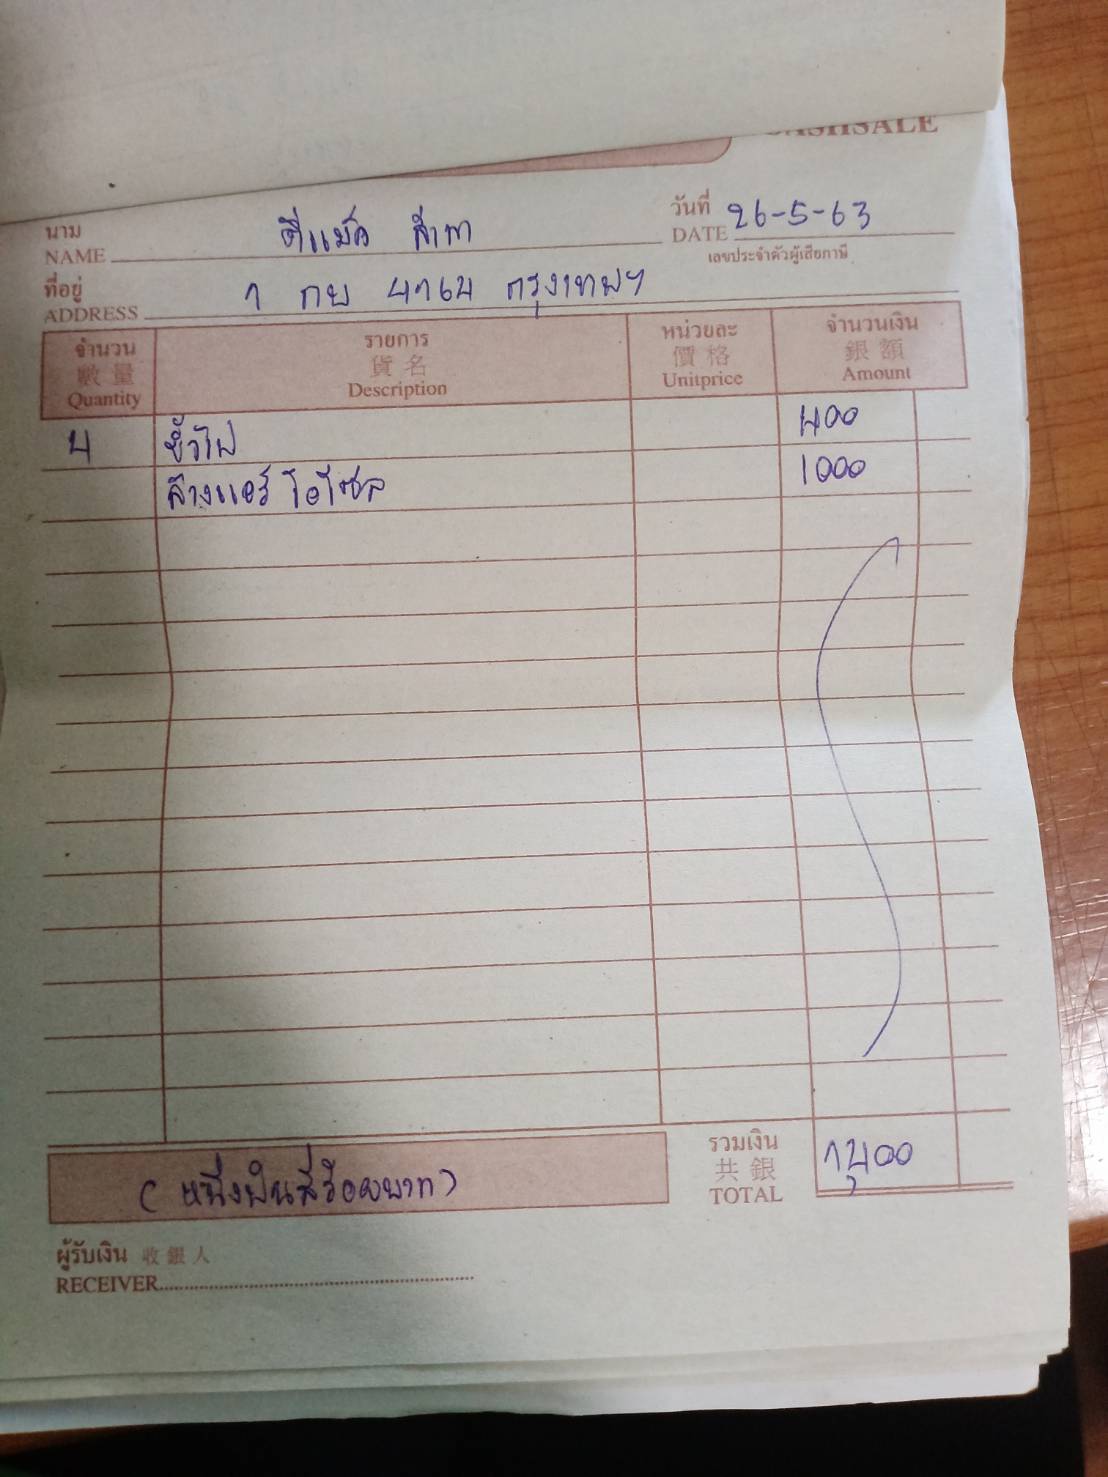 CASHSALE
นาม
NAME ดีแม๊ค สีเทา
วันที่
DATE 26-5-63
เลขประจำตัวผู้เสียภาษี
ที่อยู่
ADDRESS 1 กย 4764 กรุงเทพฯ
จำนวน รายการ หน่วยละ จำนวนเงิน
數量 貨名 價格 銀額
Quantity Description Unitprice Amount
4 ขั้วไฟ 400
ล้างแอร์ โอโซล 1000
(หนึ่งพันสี่ร้อยบาท)
รวมเงิน
共銀
TOTAL 1,400
ผู้รับเงิน 收銀人
RECEIVER